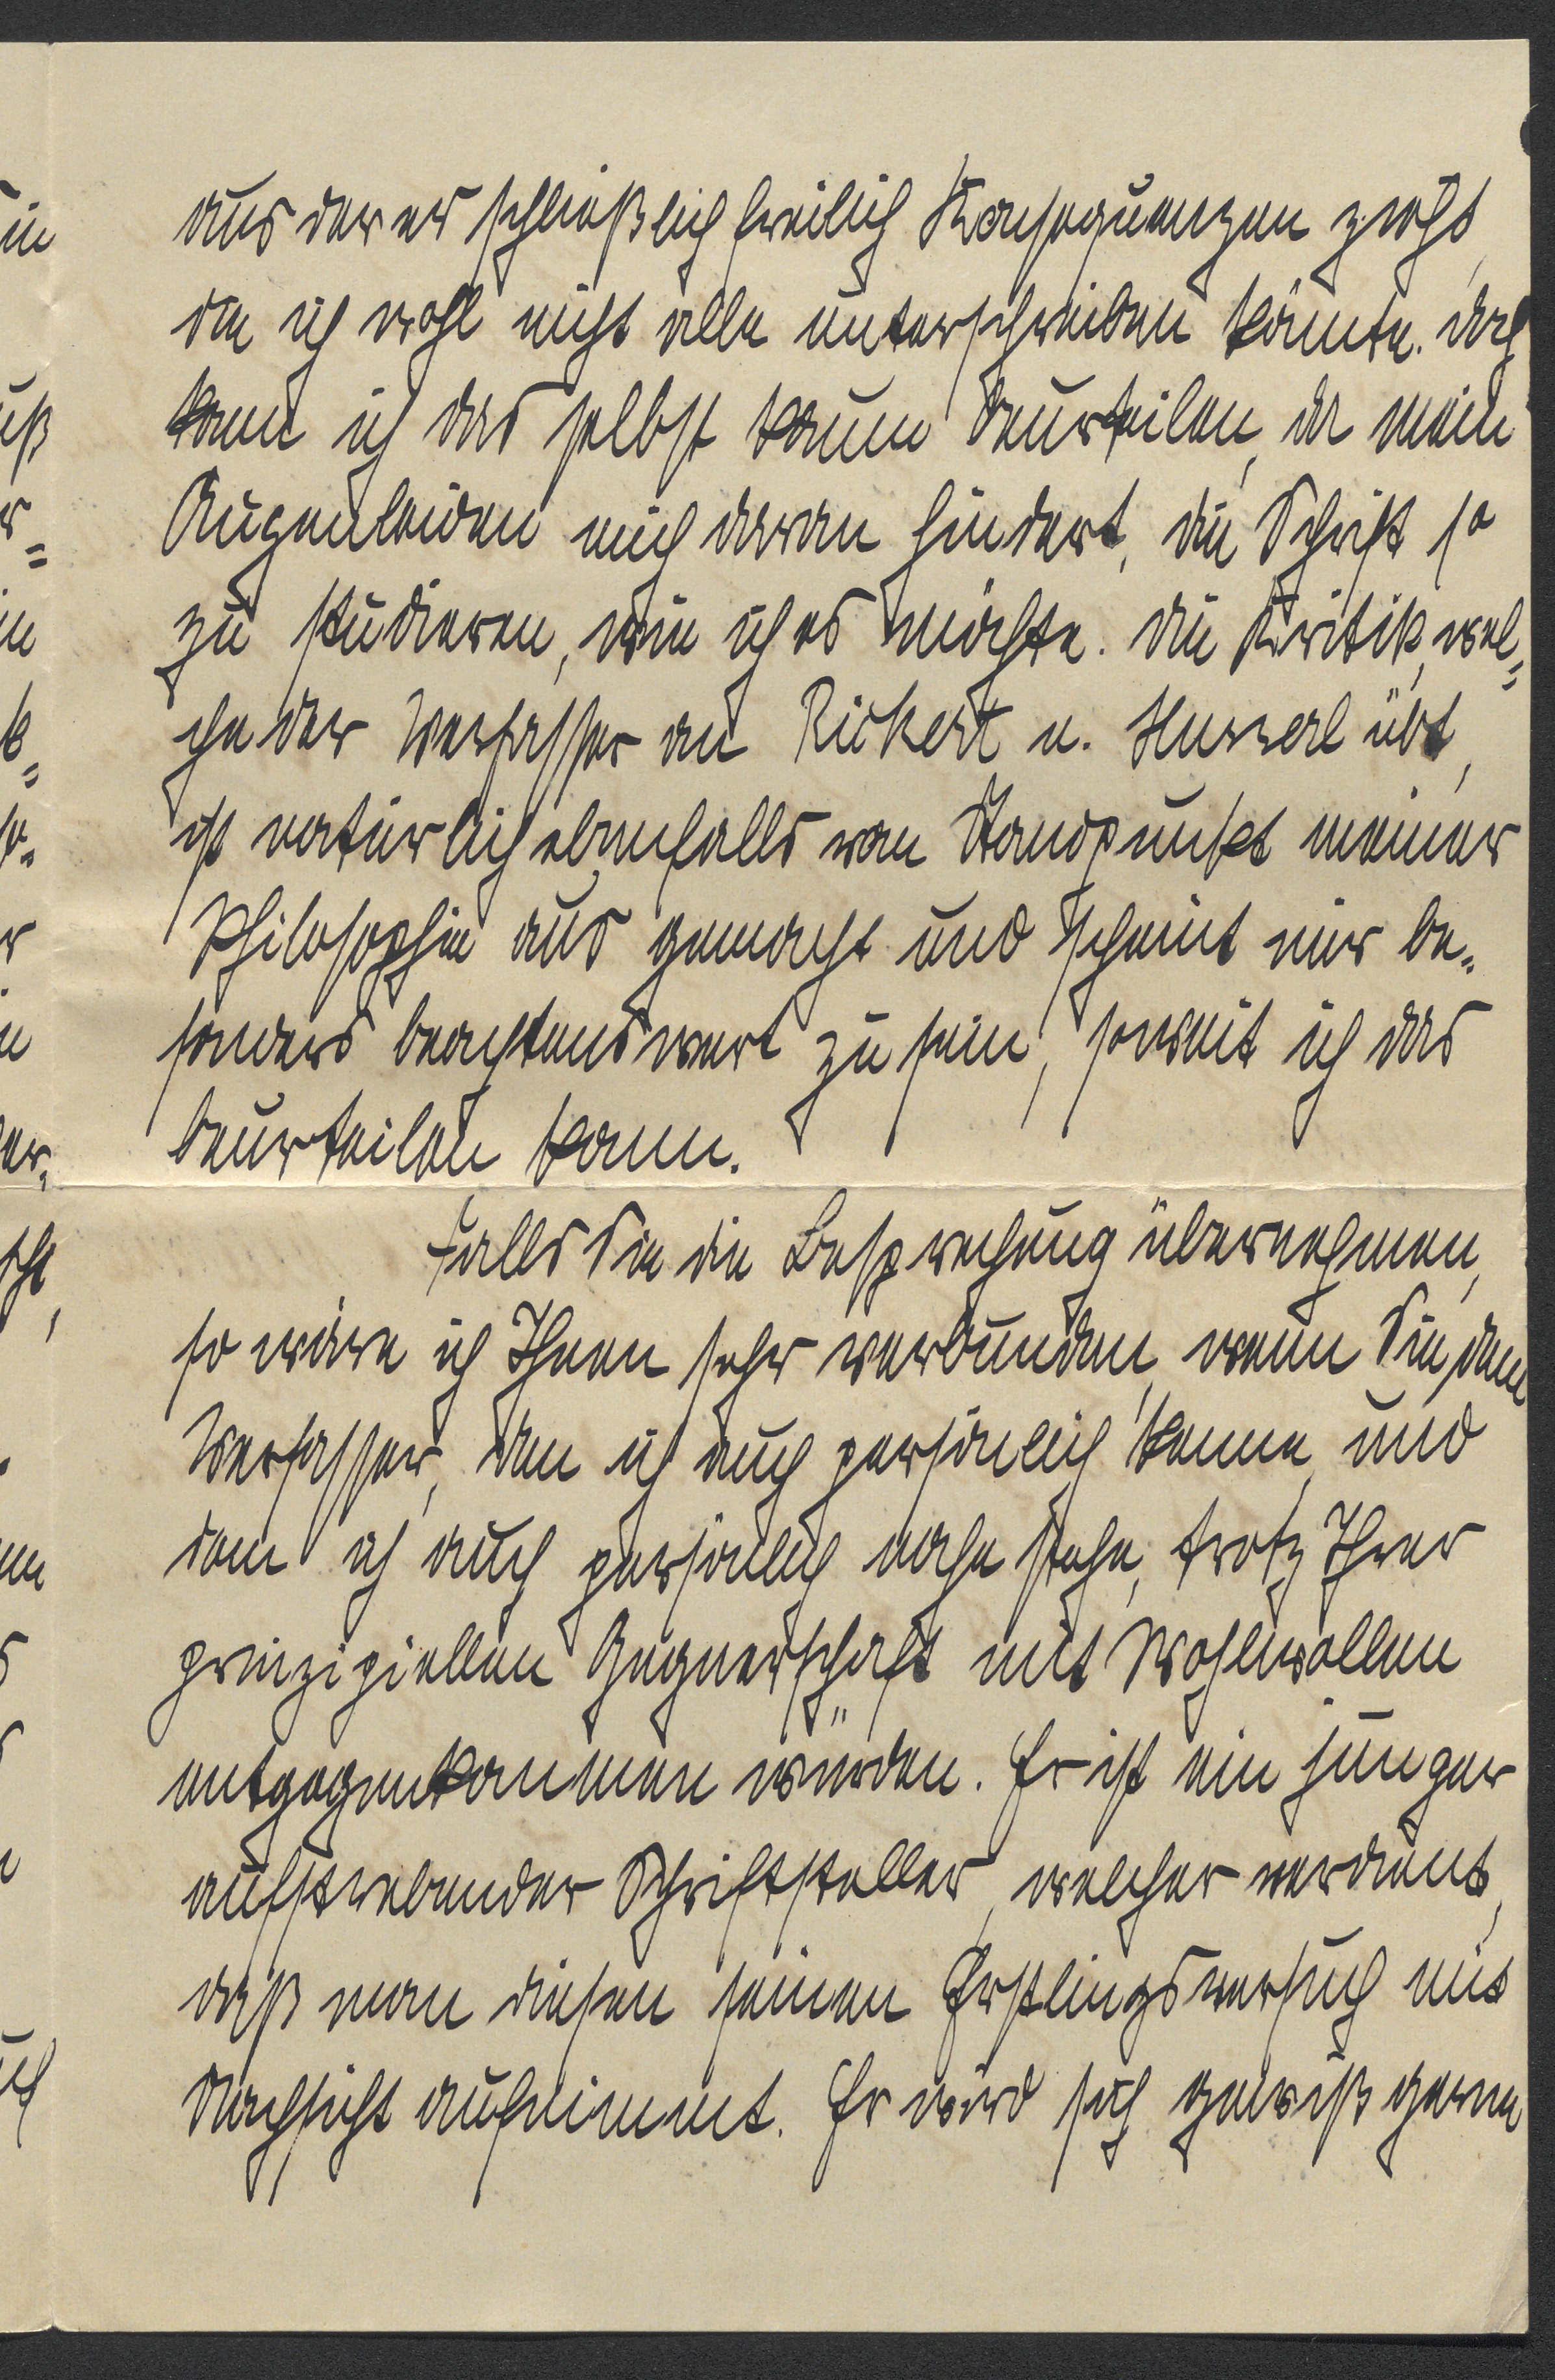 aus der er schließlich freilich Konsequenzen zieht,
die ich wohl nicht alle unterschreiben könnte. doch
kann ich das selbst kaum beurteilen, da mein
Augenleiden mich daran hindert, die Schrift so
zu studieren, wie ich es möchte. Die Kritik, wel=
che der Verfasser an Rickert u. Husserl übt,
ist natürlich ebenfalls vom Standpunkt meiner
Philosophie aus gemacht und scheint mir be=
sonders beachtenswert zu sein, soweit ich das
beurteilen kann.
Falls Sie die Besprechung übernehmen,
so wäre ich Ihnen sehr verbunden, wenn Sie dem
Verfasser, den ich auch persönlich kenne, und
dem ich auch persönlich nahe stehe, trotz Ihrer
prinzipiellen Gegnerschaft mit Wohlwollen
entgegenkommen würden. Er ist ein junger
aufstrebender Schriftsteller, welcher verdient,
daß man diesen seinen Erstlingsversuch mit
Nachsicht aufnimmt. Er wird sich gewiß gerne